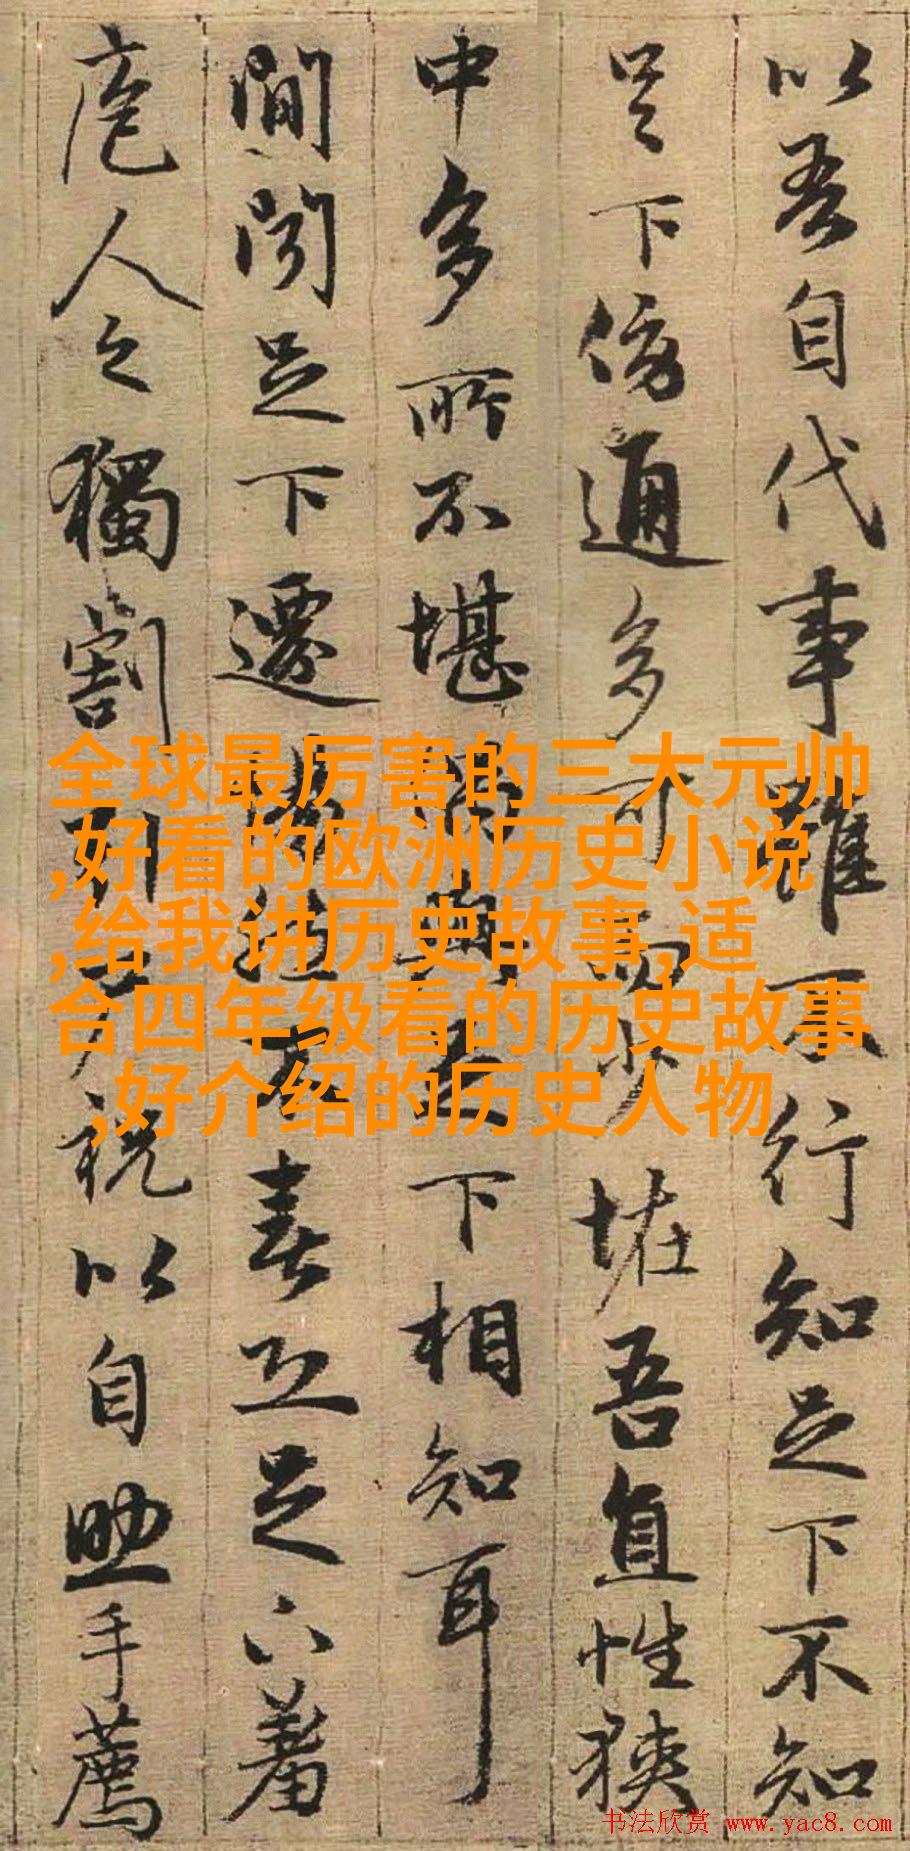 以吾自代事雖不行知足下不知
足下傍通多可而少恠吾直性狹
中多所不堪足下相知耳
間聞足下遷不喜恐足下羞
庖人之獨割引尸祝以自助手薦
全球最厉害的三大元帅
,好看的欧洲历史小说
,给我讲历史故事,适
合四年级看的历史故事
,好介绍的历史人物
书法欣赏 www.yac8.com